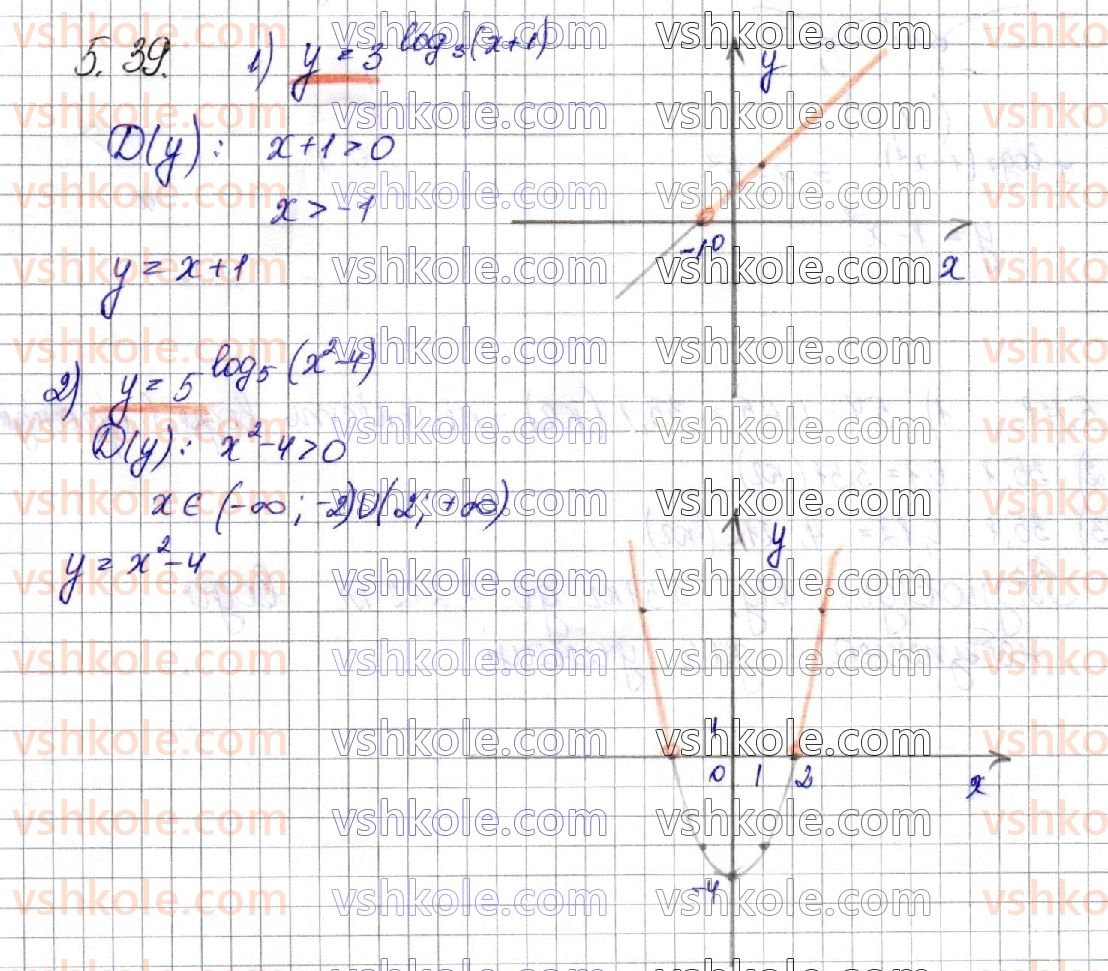 5.39. 1) y = 3^log₃(x+1)
D(y): x+1>0
x>-1
y = x+1
y
-1 0
x
2) y = 5^log₅(x²-4)
D(y): x²-4>0
x∈(-∞; -2)∪(2; +∞)
y = x²-4
y
1
0 1 2
x
-4
vshkole.com